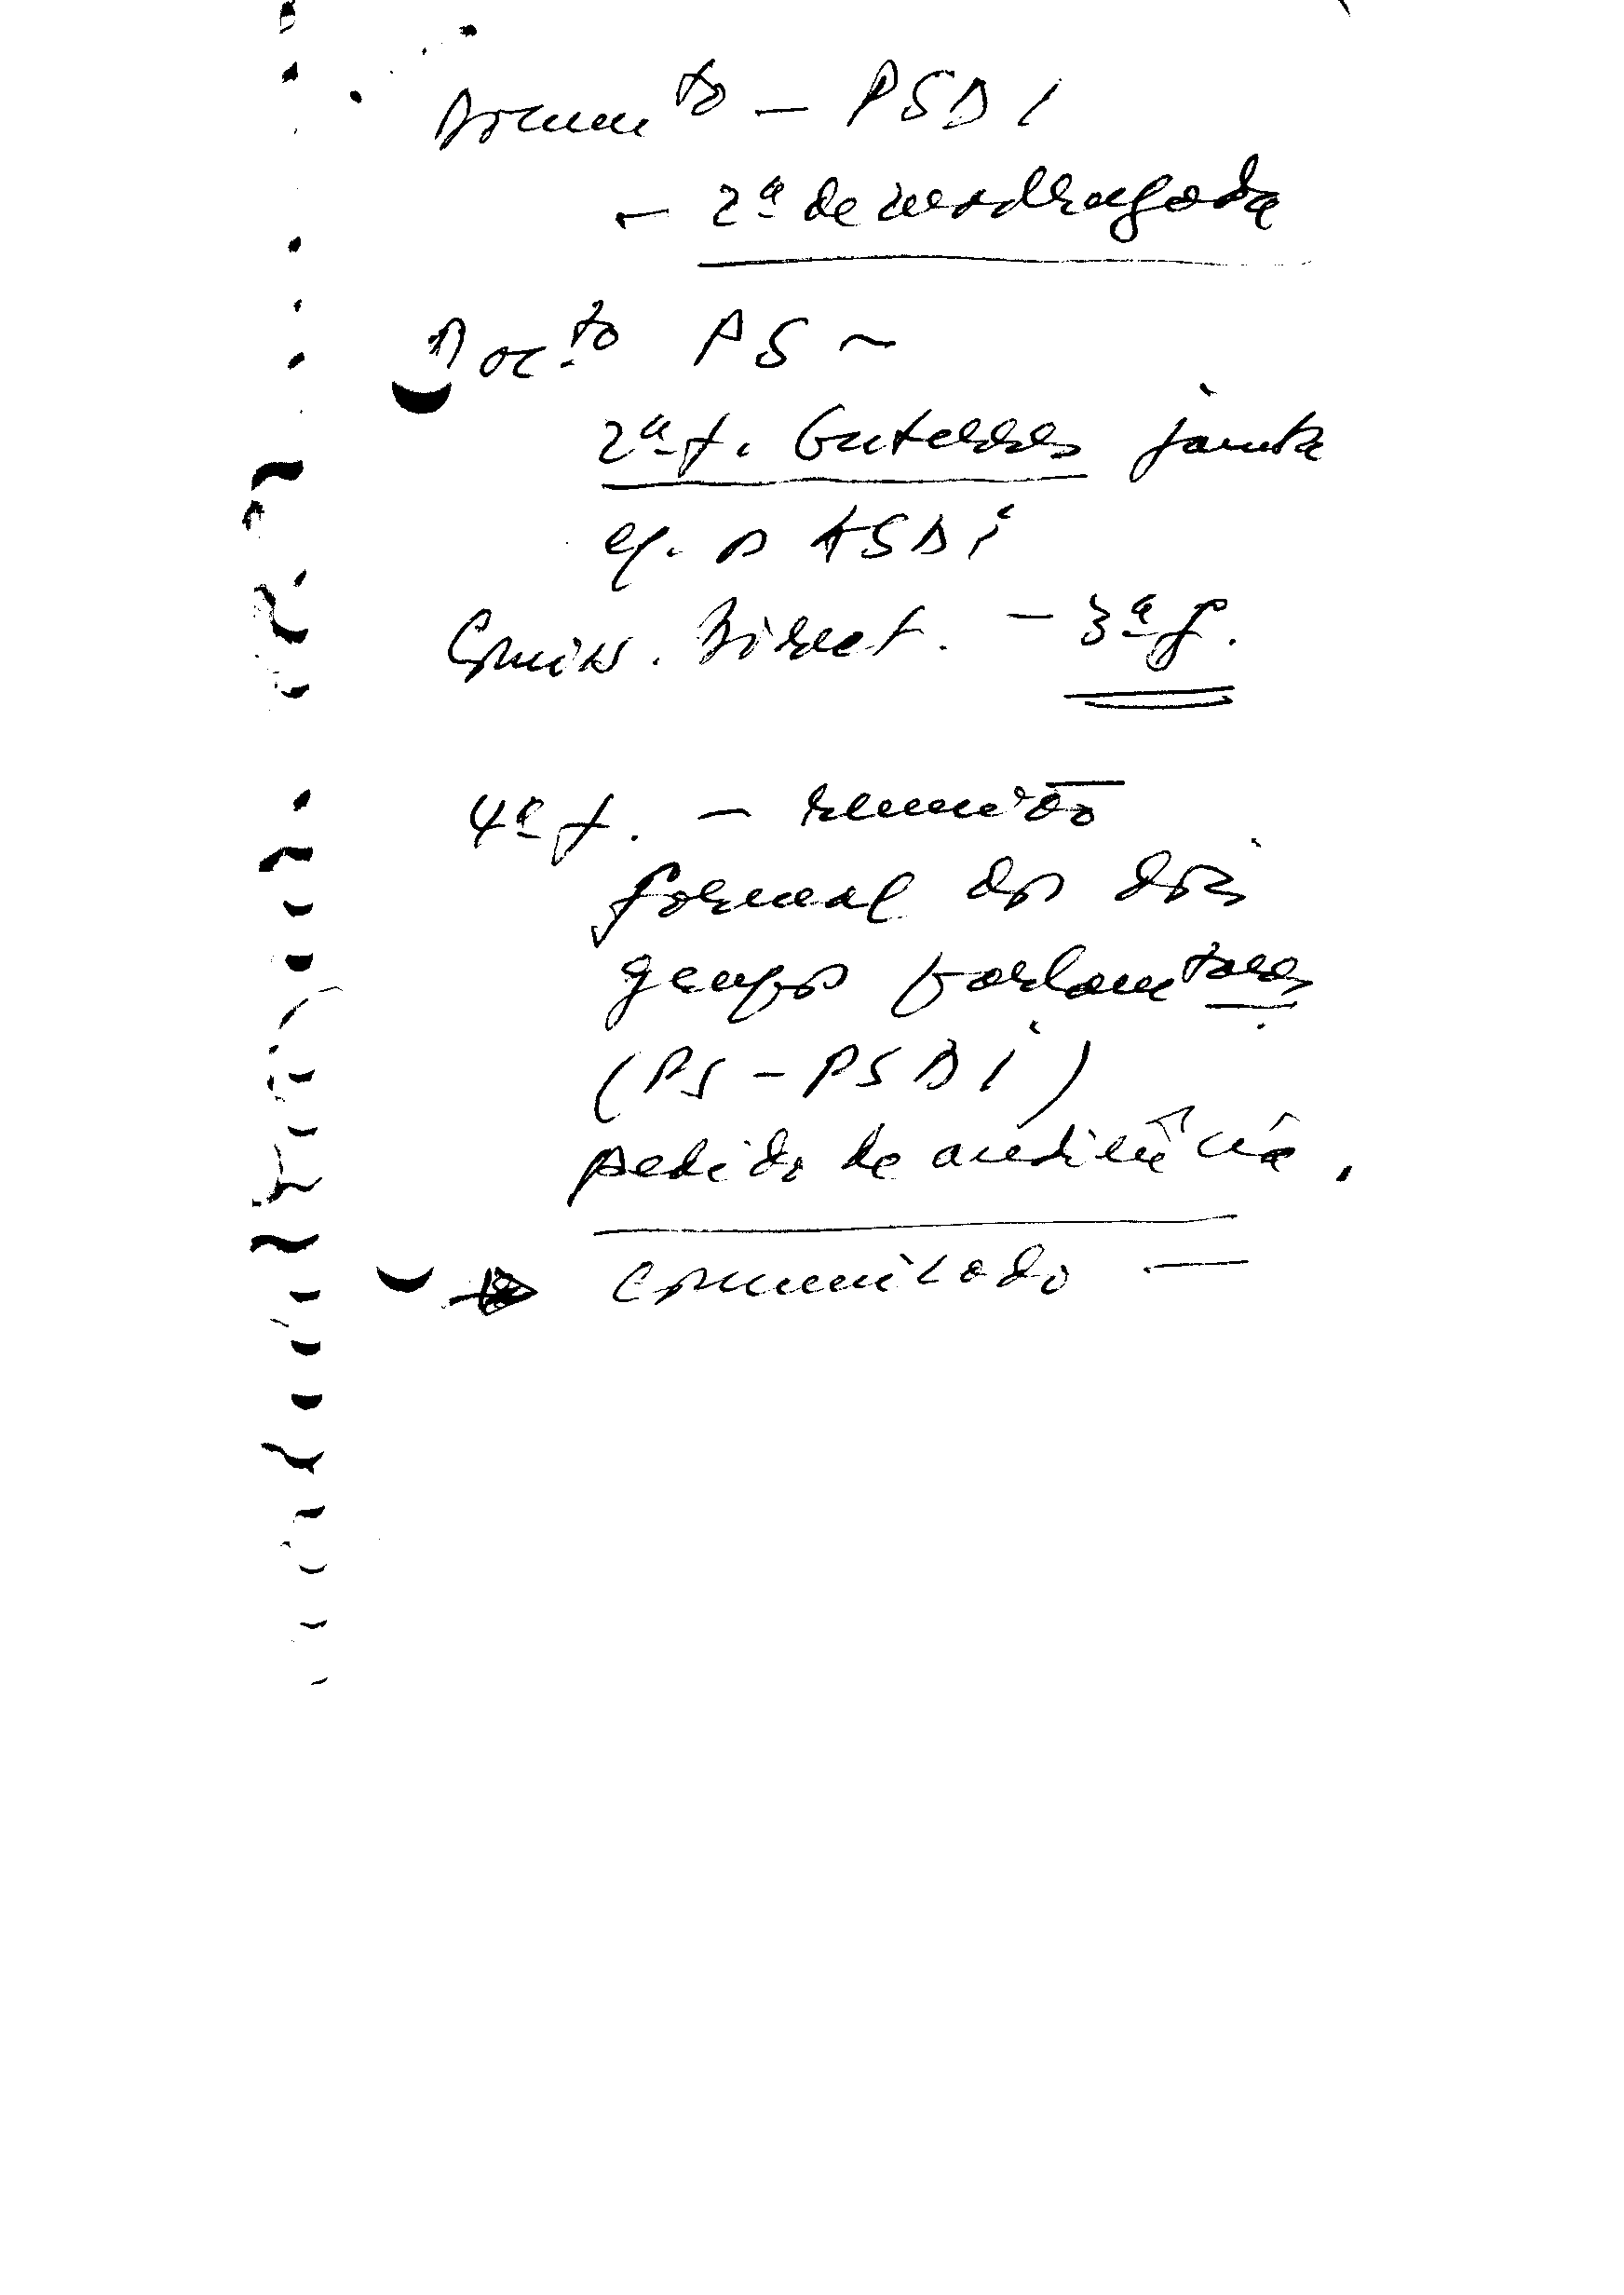 Documto - PSDI
- 2ª de madrugada
Docto PS -
2ª f. Guterres janta
c/. o ASDI
Comiss. Direct. - 3ª f.
4ª f. - reunião
formal dos dois
grupos parlamentares
(PS - PSDI)
pedido de audiência.
comunicado -